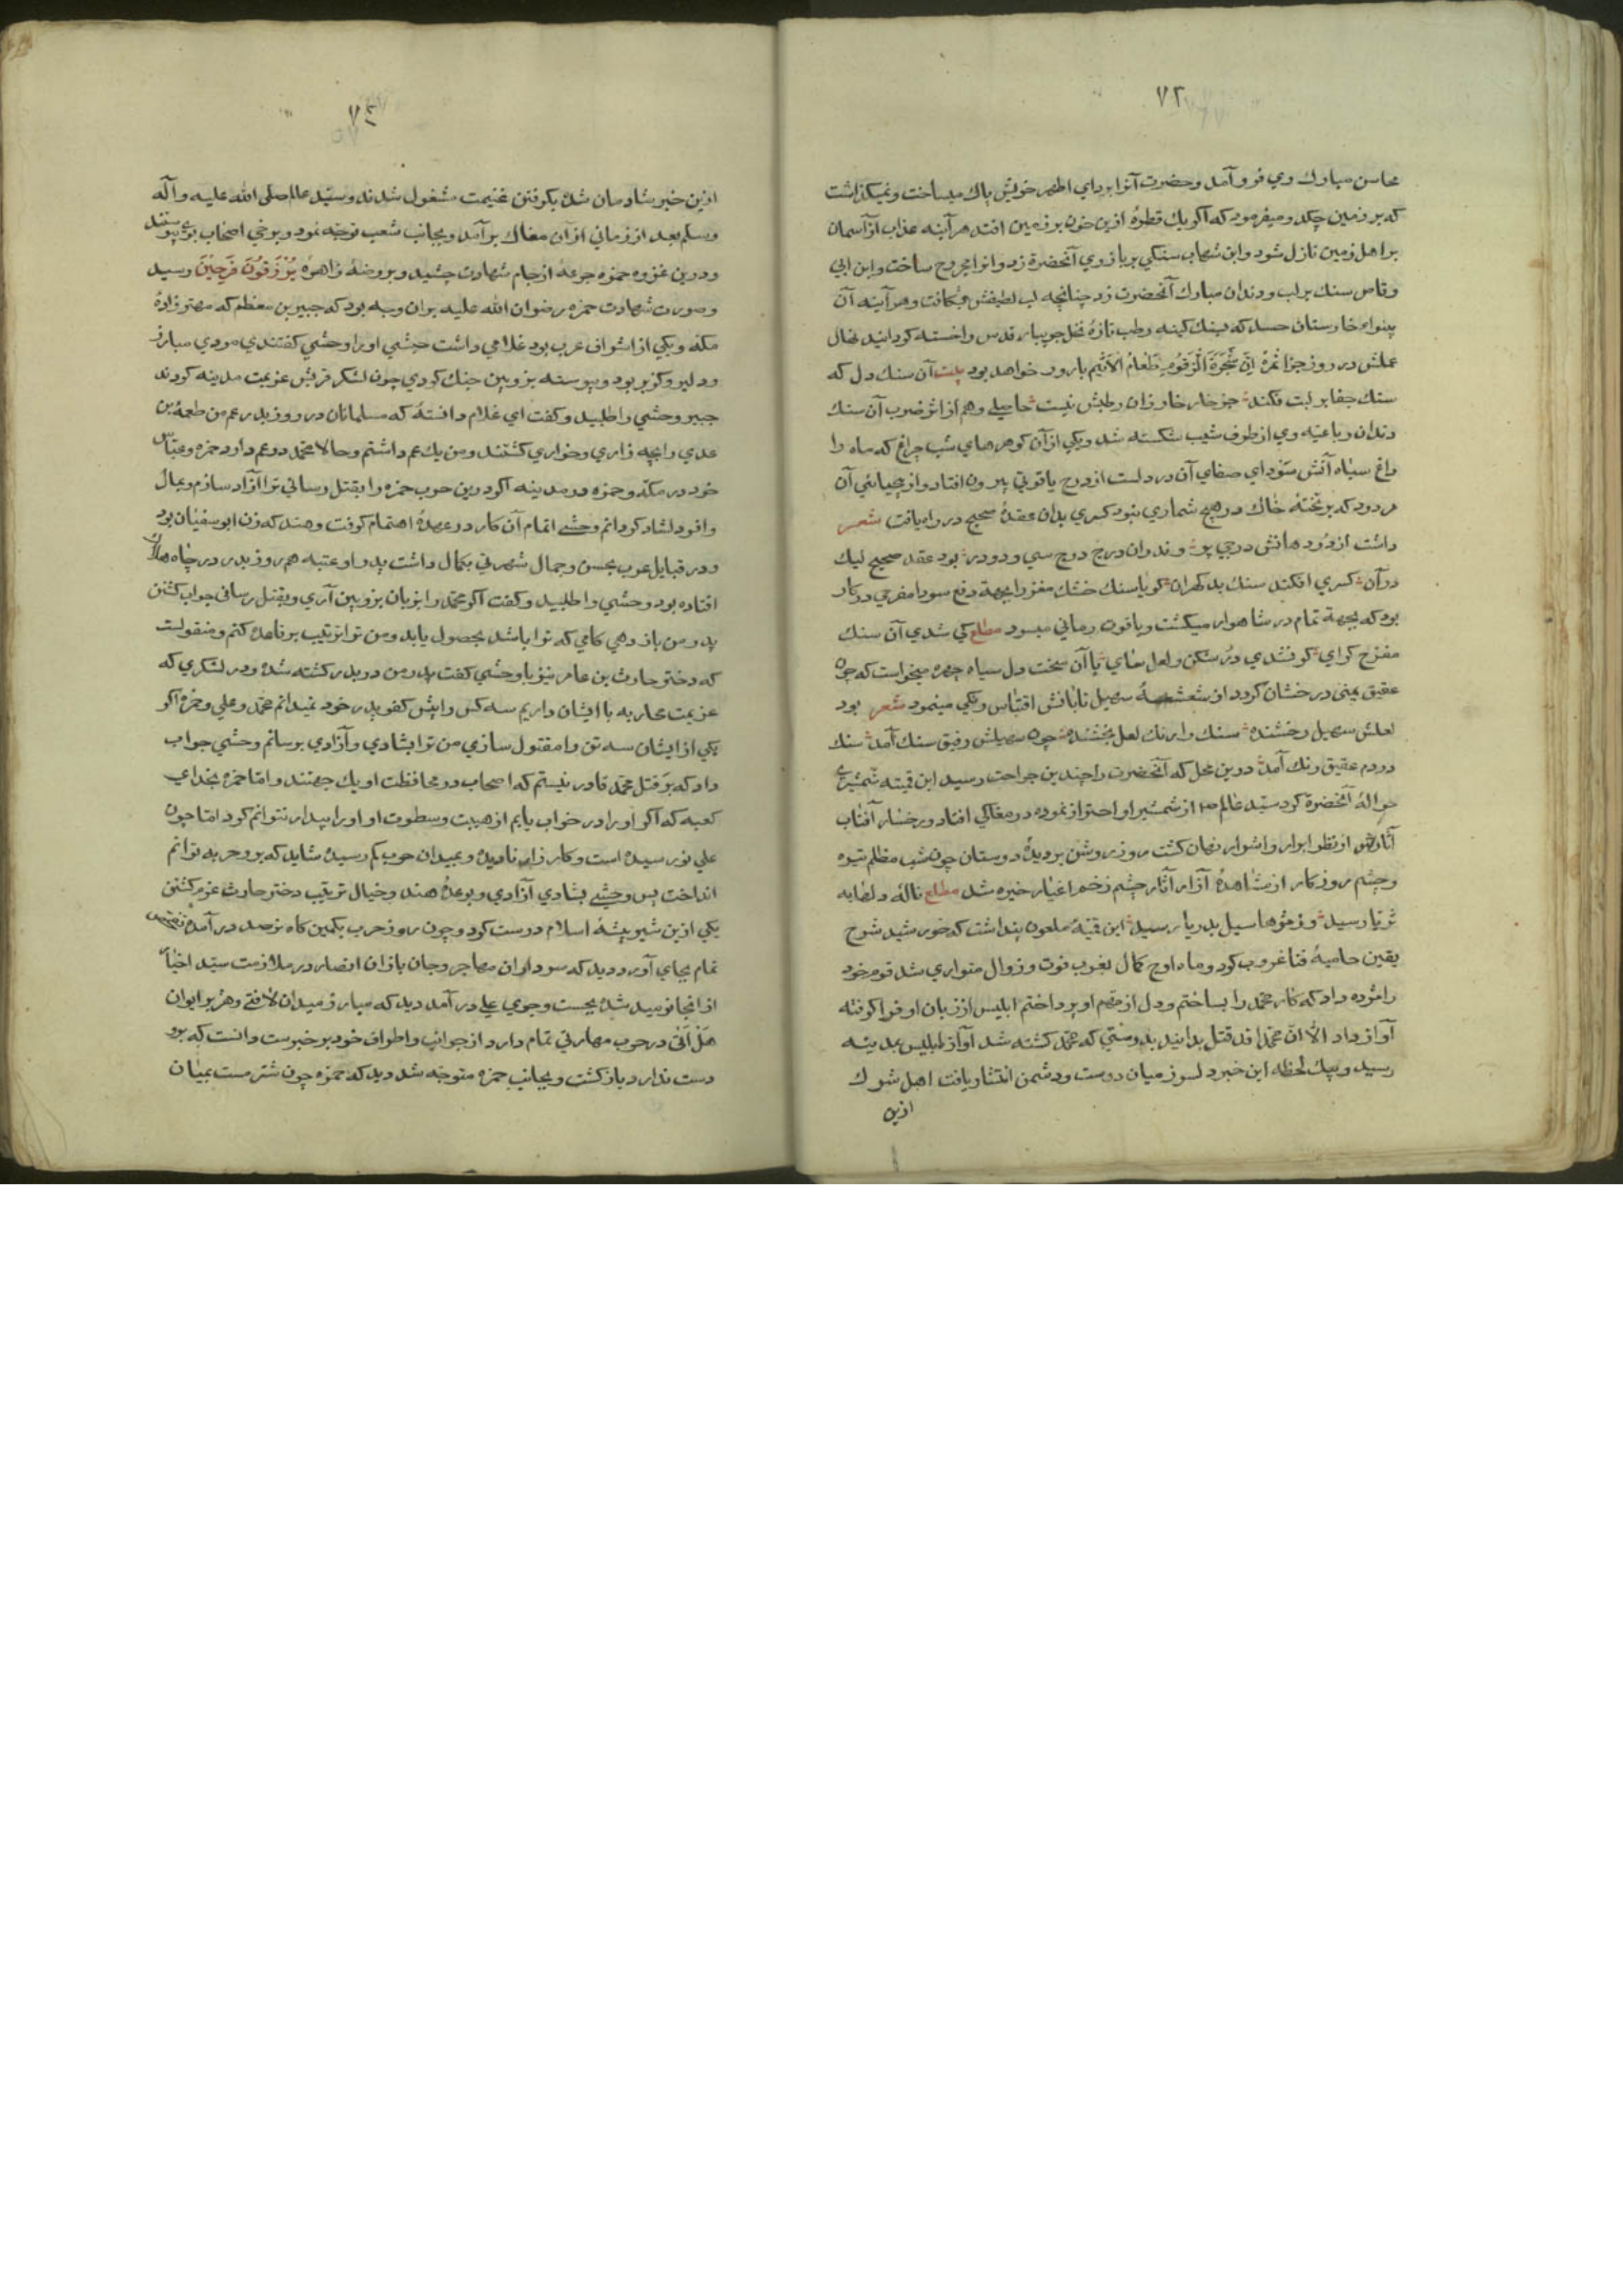 ٧٢
محاسن مبارك وي فرو آمد و حضرت آنرا برداي اطهر خويش پاك ميساخت و نميكذاشت
كه بر زمين چكد و ميفرمود كه اكر يك قطرهٔ ازين خون بر زمين افتد هر آينه عذاب از آسمان
بر اهل زمين نازل شود و ابن شهاب سنكي بر بازوي آنحضرة زد و انرا مجروح ساخت و ابن ابي
وقاص سنك بر لب و دندان مبارك آنحضرت زد چنانچه لب لطيفش بشكافت و هر آينه آن
بينواء خارستان حسد كه بسنك كينه رطب تازهٔ نخل جويبار قدس را خسته كردانيد نهال
عملش در روز جزا ثمرهٔ اِنَّ شَجَرَةَ الزَّقُّومِ طَعَامُ الاَثِيمِ بارور خواهد بود بيت آن سنك دل كه
سنك جفا بر لبت فكند جز خار خار زان رطبش نيست حاصلي و هم از اثر ضرب آن سنك
دندان رباعيه وي از طرف شيب شكسته شد و يكي از آن كوهرهاي شب چراغ كه ماه را
داغ سياه آتش سوداي صفاي آن در دلست از درج ياقوتي بيرون افتاد و از بيبهائي آن
مردود كه بر تختهٔ خاك در هيچ شماري نبود كسري بدان عقدهٔ صحيح در راه يافت شعر
داشت از دُرد هانش درجي پر و ندران درج درج سي و دو در بود عقد صحيح ليك
در آن كسري افكند سنك بد كهران كويا سنك خشك مغز را بجهة دفع سودا مفرحي در كار
بود كه بجهة تمام در شاهوار ميكشت و ياقوت رماني ميسود مطلع كي شدي آن سنك
مفرح كراي كر نشدي دُر شكن و لعل ساي يا آن سخت دل سياه چهره ميخواست كه چون
عقيق يمنى درخشان كردد از شعشعهٔ سهيل تابانش اقتباس رنكي مينمود شعر بود
لعلش سهيل رخشنده سنك را رنك لعل بخشنده چون سهيلش رفيق سنك آمد سنك
در دم عقيق رنك آمد درين محل كه آنحضرت را چندين جراحت رسيد ابن قيته شمشيرے
حوالهٔ آنحضرة كرد سيّد عالم از شمشير او احتراز نموده در مغاكي افتاد و رخسار آفتاب
آثارش از نظر ابرار و اشرار نهان كشت روز روشن بر ديدهٔ دوستان چون شب مظلم تيره
و چشم روزكار از مشاهدهٔ آزار آثار چشم زخم اغيار خيره شد مطلع ناله دلها به
ثريا رسيد و زمژها سيل بدريا رسيد ابن قيتهٔ ملعون پنداشت كه خورشيد شرح
يقين حاميهٔ فنا غروب كرد و ماه اوج كمال بغرب فوت و زوال متواري شد قوم خود
را مژده داد كه كار محمّد را بساختم و دل از مهم او پرداختم ابليس از زبان او فرا كرفته
آواز داد الا ان محمّدا قد قتل بدانيد بدرستي كه محمّد كشته شد آواز ابليس بمدينه
رسيد و بيك لحظه اين خبر دلسوز ميان دوست و دشمن انتشار يافت اهل شرك
ازين
٧٤
ازين خبر شادمان شدهٔ بكرفتن غنيمت مشغول شدند و سيّد عالم صلى الله عليه و آله
و سلم بعد از زماني از آن مغاك بر آمد و بجانب شعب توجّه نمود و برخي اصحاب بوي پيوستند
و درين غزوه حمزه جرعهٔ از جام شهادت چشيد و بروضهٔ زاهرهٔ يُرْزَقُونَ فَرِحِينَ رسيد
و صورت شهادت حمزه رضوان الله عليه بران وجه بود كه جبير بن مطعم كه مهتر زادهٔ
مكّه و يكي از اشراف عرب بود غلامي داشت حبشي او را وحشي كفتندي مردي مبارز
و دلير و كزبر بود و پيوسته بزوبين جنك كردي چون لشكر قريش عزيمت مدينه كردند
جبير وحشي را طلبيد و كفت اي غلام دانستهٔ كه مسلمانان در روز بدر عم من طعمهٔ بن
عدي را بچه زاري و خواري كشتند و من يك عم داشتم و حالا محمّد دو عم دارد حمزه و عبّاس
خود در مكّه و حمزه در مدينه اكر درين حرب حمزه را بقتل رساني ترا آزاد سازم و بمال
وافر دلشاد كردانم وحشے اتمام آن كار در عهدهٔ اهتمام كرفت و هند كه زن ابو سفيان بود
و در قبايل عرب بحسن و جمال شهرتي بكمال داشت پدر او عتبه هم روز بدر در چاه هلاك
افتاده بود وحشي را طلبيد و كفت اكر محمّد را بزبان بزوبين آري و بقتل رسانى جواب كشتن
پدر من باز دهي كامي كه ترا باشد بحصول يابد و من ترا ترتيب برفاههٔ كنم و منقولست
كه دختر حارث بن عامر نيز با وحشي كفت پدر من در بدر كشته شدهٔ و در لشكري كه
عزيمت محاربه با ايشان داريم سه كس را پيش كفو پدر خود نميدانم محمّد و علي و حمزه اكر
يكي از ايشان سه تن را مقتول سازي من ترا بشادي و آزادي برسانم وحشي جواب
داد كه بَر قتل محمّد قادر نيستم كه اصحاب در محافظت او يك جهتند و امّا حمزه بخداي
كعبه كه اكر او را در خواب يابم از هيبت و سطوت او او را بيدار نتوانم كرد امّا چون
علي نورسيدهٔ است و كار زار ناديدهٔ و بميدان حرب كم رسيدهٔ شايد كه برو حربه توانم
انداخت پس وحشے بشادي آزادي و بوعدهٔ هند و خيال ترتيب دختر حارث عزم كشتن
يكي ازين شير بيشهٔ اسلام درست كرد و چون روز حرب بكمين كاه ترصد در آمد تفحص
تمام بجاي آورد ديد كه سرداران مهاجر و جان بازان انصار در ملازمت سيّد اخيار
از انجا نوميد شدهٔ بجست و جوي علي در آمد ديد كه مبارز ميدان لافتي و هزبر ايوان
هَلْ اَتٰى در حرب مهارتي تمام دارد از جوانب و اطراف خود بر خبرست دانست كه برو
دست ندارد باز كشت و بجانب حمزه متوجّه شد ديد كه حمزه چون شتر مست بميان